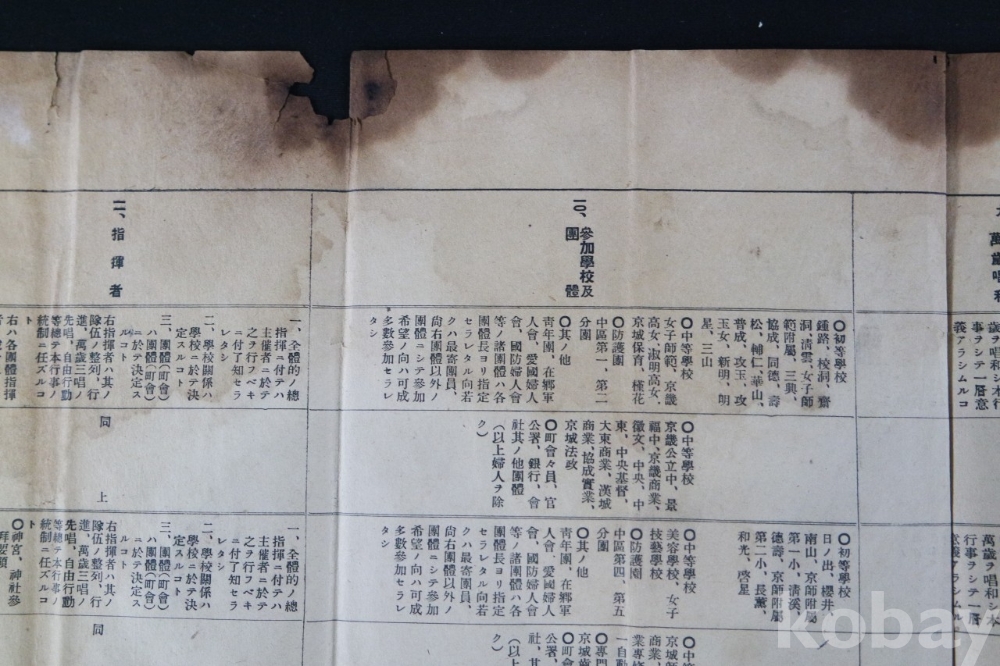 萬歲唱和
歲ヲ唱和シ本行
事ヲシテ一層意
義アラシムルコ
萬歲ヲ唱和シ本
行事ヲシテ一層
意義アラシムル
一〇、參加學校及
團體
〇初等學校
鍾路、校洞、齋
洞、清雲、女子師
範附屬、三興、
協成、同德、壽
松、補仁、華山、
普成、攻玉、攻
玉女、新明、明
星、三山
〇中等學校
女子師範、京畿
高女、淑明高女、
京城保育、槿花
〇防護團
中區第一、第二
分團
〇其ノ他
靑年團、在鄕軍
人會、愛國婦人
會、國防婦人會
等ノ諸團體ハ各
團體長ヨリ指定
セラレタル向若
クハ最寄團員、
尙右團體以外ノ
團體ニシテ參加
希望ノ向ハ可成
多數參加セラレ
タシ
〇中等學校
京畿公立中、景
福中、京畿商業、
徽文、中央、中
東、中央基督、
大東商業、漢城
商業、協成實業、
京城法政
〇町會々員、官
公署、銀行、會
社其ノ他團體
(以上婦人ヲ除
ク)
〇初等學校
日ノ出、櫻井、
南山、京師附屬
第一小、淸溪、
德壽、京師附屬
第二小、長薰、
和光、啓星
〇中等學校
美容學校、女子
技藝學校
〇防護團
中區第四、第五
分團
〇其ノ他
靑年團、在鄕軍
人會、愛國婦人
會、國防婦人會
等ノ諸團體ハ各
團體長ヨリ指定
セラレタル向若
クハ最寄團員、
尙右團體以外ノ
團體ニシテ參加
希望ノ向ハ可成
多數參加セラレ
タシ
〇中等
京城師
商業、
業專修
一自動
〇專門
京城齒
〇町會
公署、
社、其
(以上
ク)
一一、指揮者
一、全體的ノ總
指揮ニ付テハ
主催者ニ於テ
之ヲ行フベキ
ニ付了知セラ
レタシ
二、學校關係ハ
學校ニ於テ決
定スルコト
三、團體(町會)
ハ團體(町會)
ニ於テ決定ス
ルコト
右指揮者ハ其ノ
隊伍ノ整列、行
進、萬歲三唱ノ
先唱、自由行動
等總テ本行事ノ
統制ニ任ズルコ
ト
右ハ各團體指揮
同
上
一、全體的ノ總
指揮ニ付テハ
主催者ニ於テ
之ヲ行フベキ
ニ付了知セラ
レタシ
二、學校關係ハ
學校ニ於テ決
定スルコト
三、團體(町會)
ハ團體(町會)
ニ於テ決定ス
ルコト
右指揮者ハ其ノ
隊伍ノ整列、行
進、萬歲三唱ノ
先唱、自由行動
等總テ本行事ノ
統制ニ任ズルコ
ト
〇神宮、神社參
拜要領
同
kobay